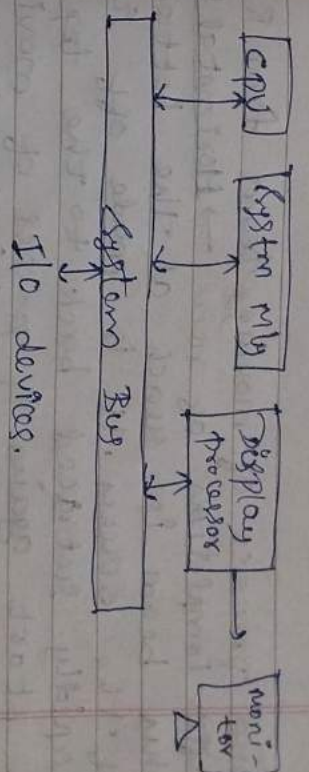 CPU
System Mly
Display
processor
moni-
tor
System Bus.
I/o devices.